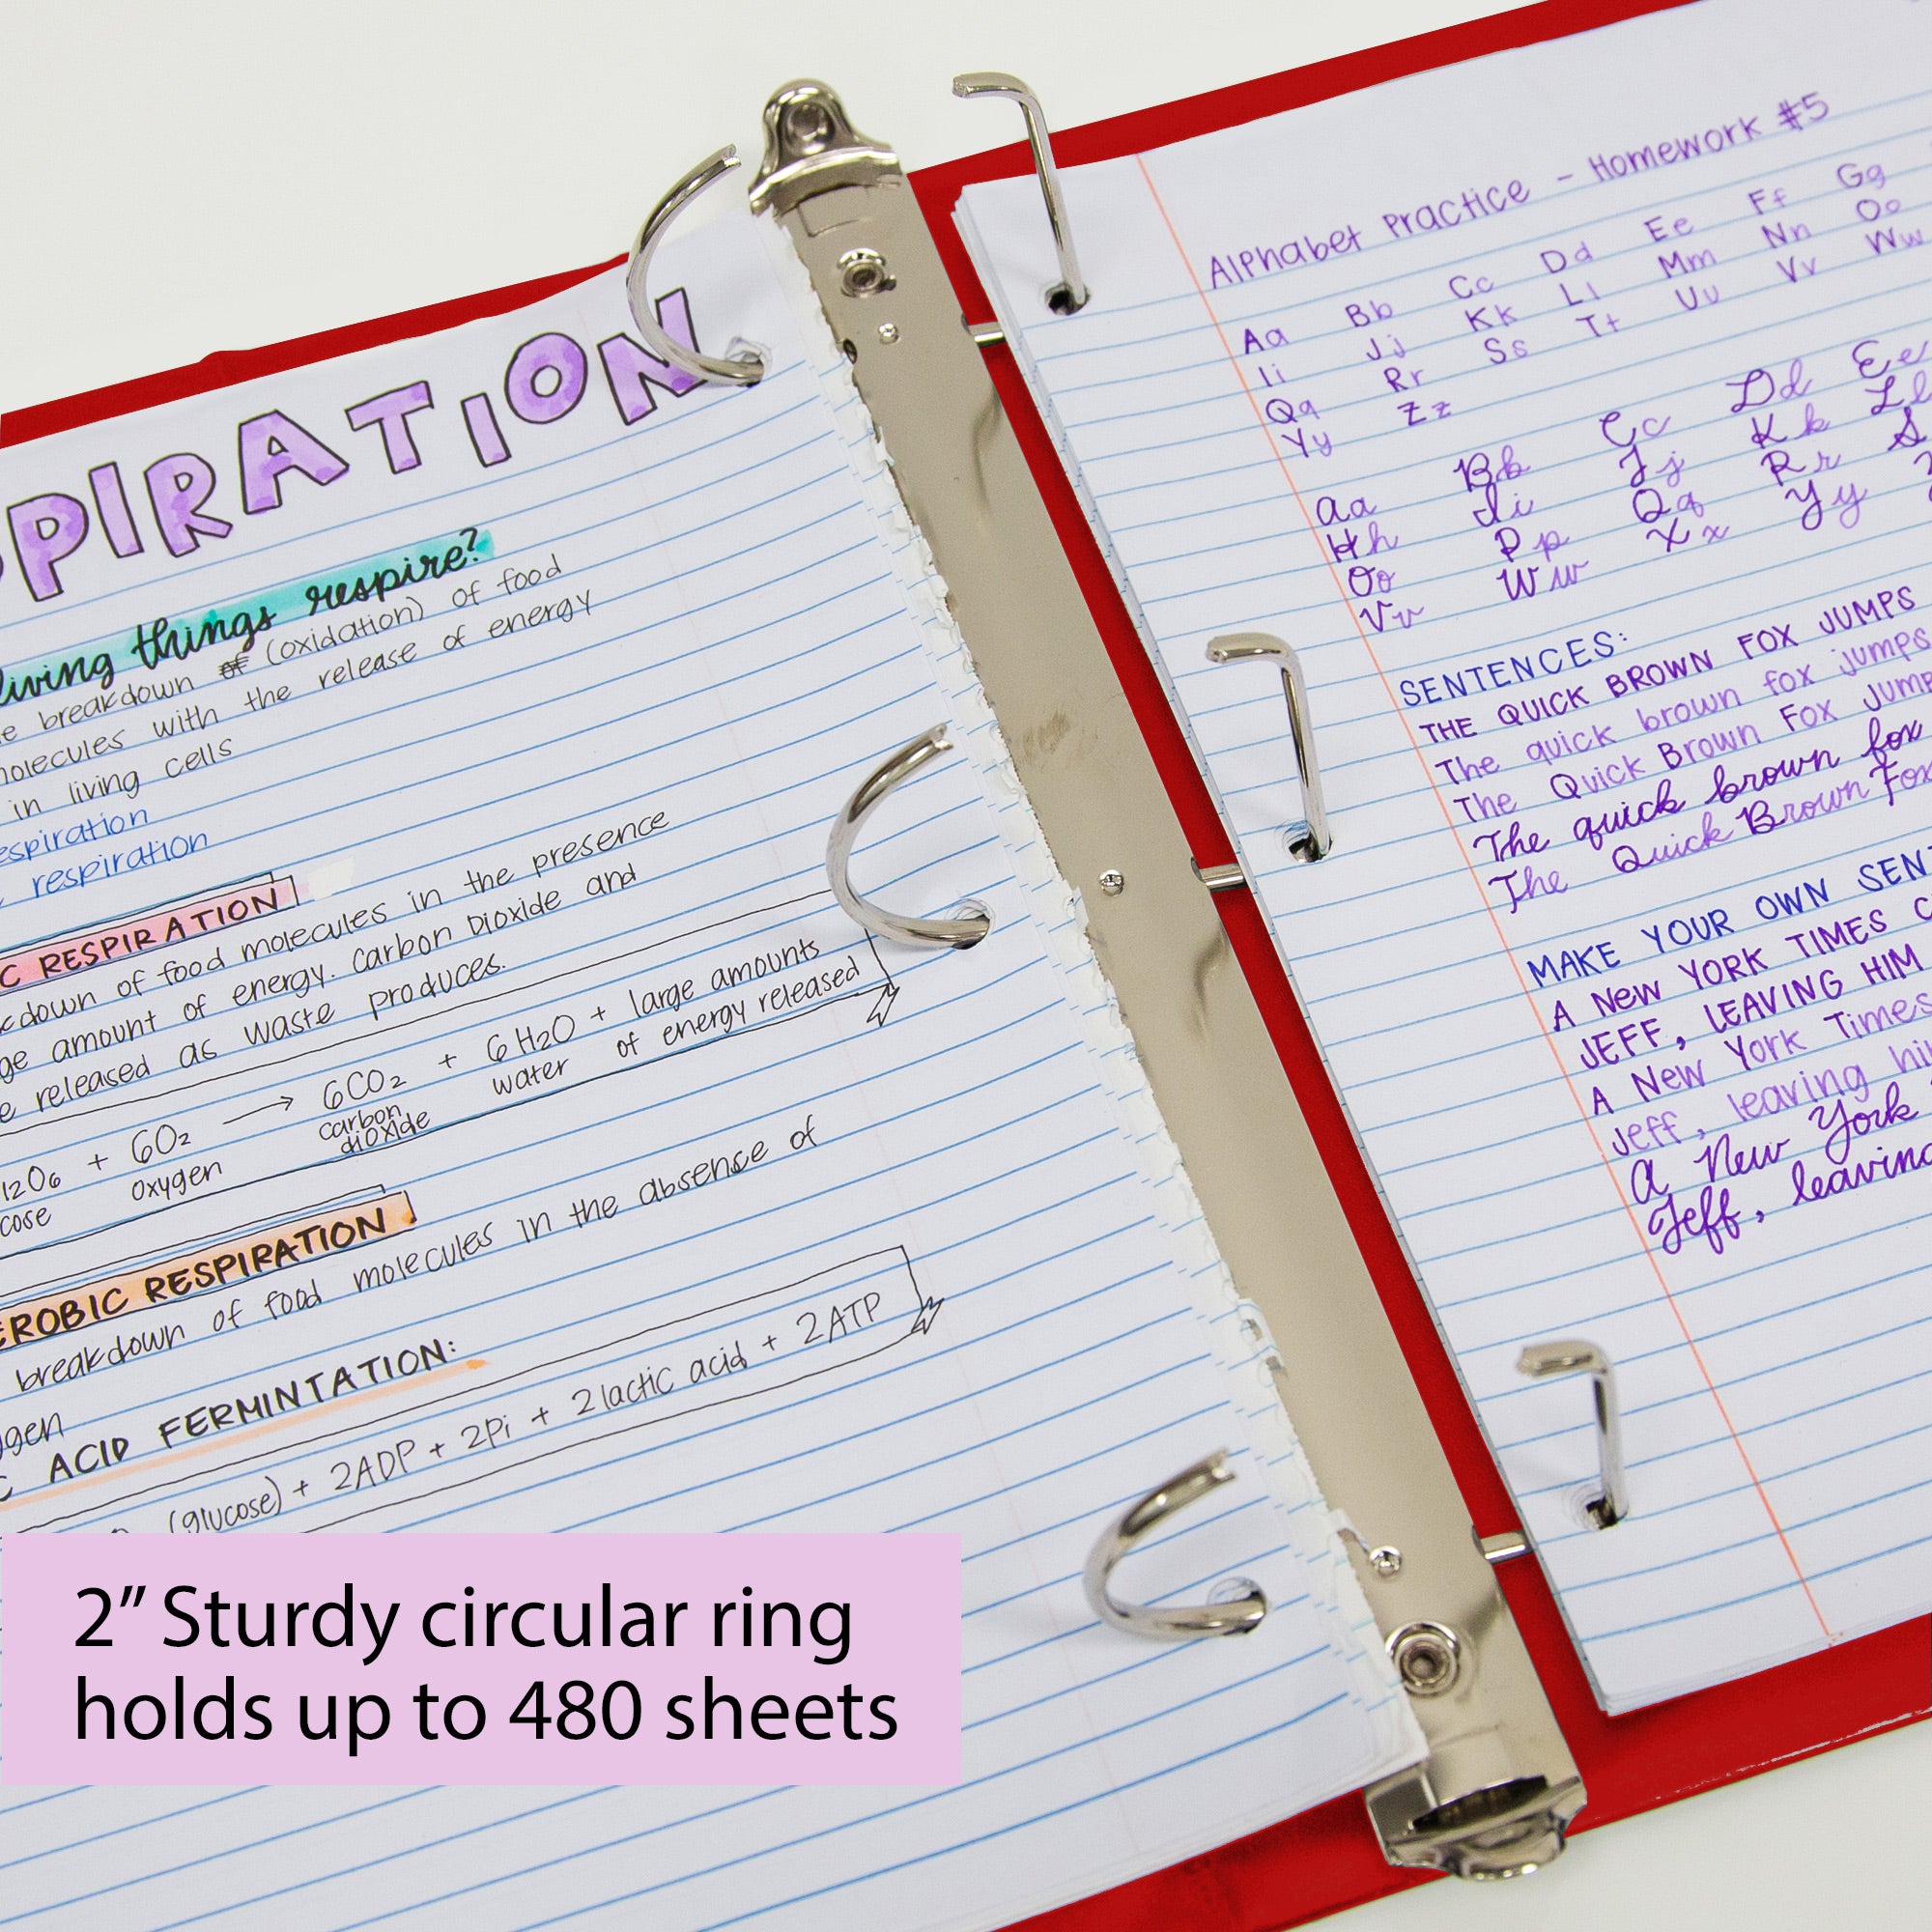 PIRATION
living things respire?
breakdown of (oxidation) of food
molecules with the release of energy
in living cells
respiration
respiration
C RESPIRATION
down of food molecules in the presence
amount of energy. Carbon Dioxide and
released as waste produces.
12O6 + 6O2 → 6CO2 + 6H2O + large amounts
cose oxygen carbon dioxide water of energy released
EROBIC RESPIRATION
breakdown of food molecules in the absence of
ygen
C ACID FERMINTATION:
(glucose) + 2ADP + 2Pi + 2lactic acid + 2ATP
Alphabet Practice - Homework #5
Aa Bb Cc Dd Ee Ff Gg
Ii Jj Kk Ll Mm Nn Oo
Qq Rr Ss Tt Uu Vv Ww
Yy Zz
Aa Bb Cc Dd Ee
Hh Ii Jj Kk Ll
Oo Pp Qq Rr S
Vv Ww Xx Yy
SENTENCES:
THE QUICK BROWN FOX JUMPS
The quick brown fox jumps
The Quick Brown Fox Jump
The quick brown fox
The Quick Brown Fox
MAKE YOUR OWN SENT
A NEW YORK TIMES C
JEFF, LEAVING HIM
A New York Times
Jeff, leaving hi
A New York
Jeff, leaving
2” Sturdy circular ring
holds up to 480 sheets